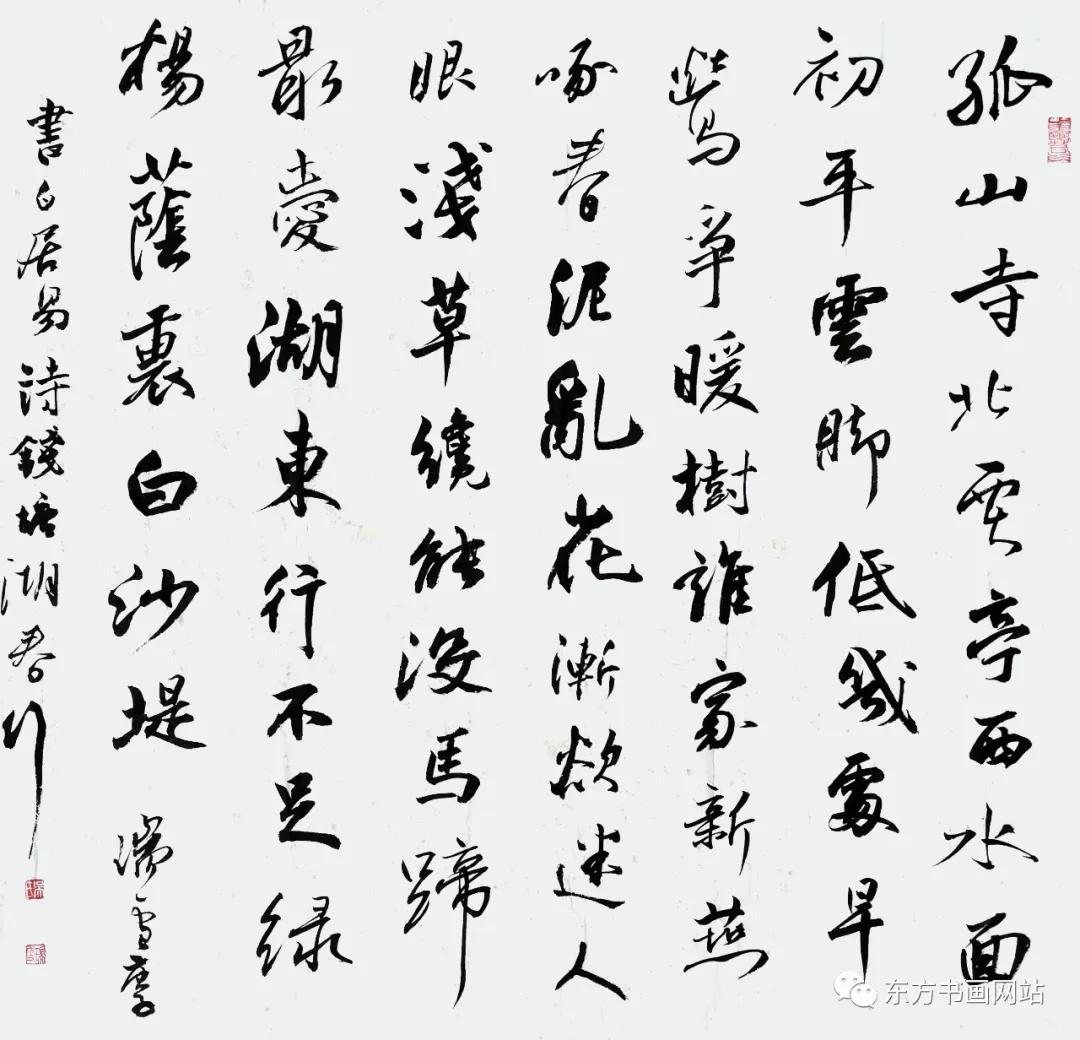 孤山寺北賈亭西水面
初平雲脚低幾處早
鶯爭暖樹誰家新燕
啄春泥亂花漸欲迷人
眼淺草纔能没馬蹄
最愛湖東行不足緑
楊蔭裏白沙堤
書白居易詩錢塘湖春行
东方书画网站